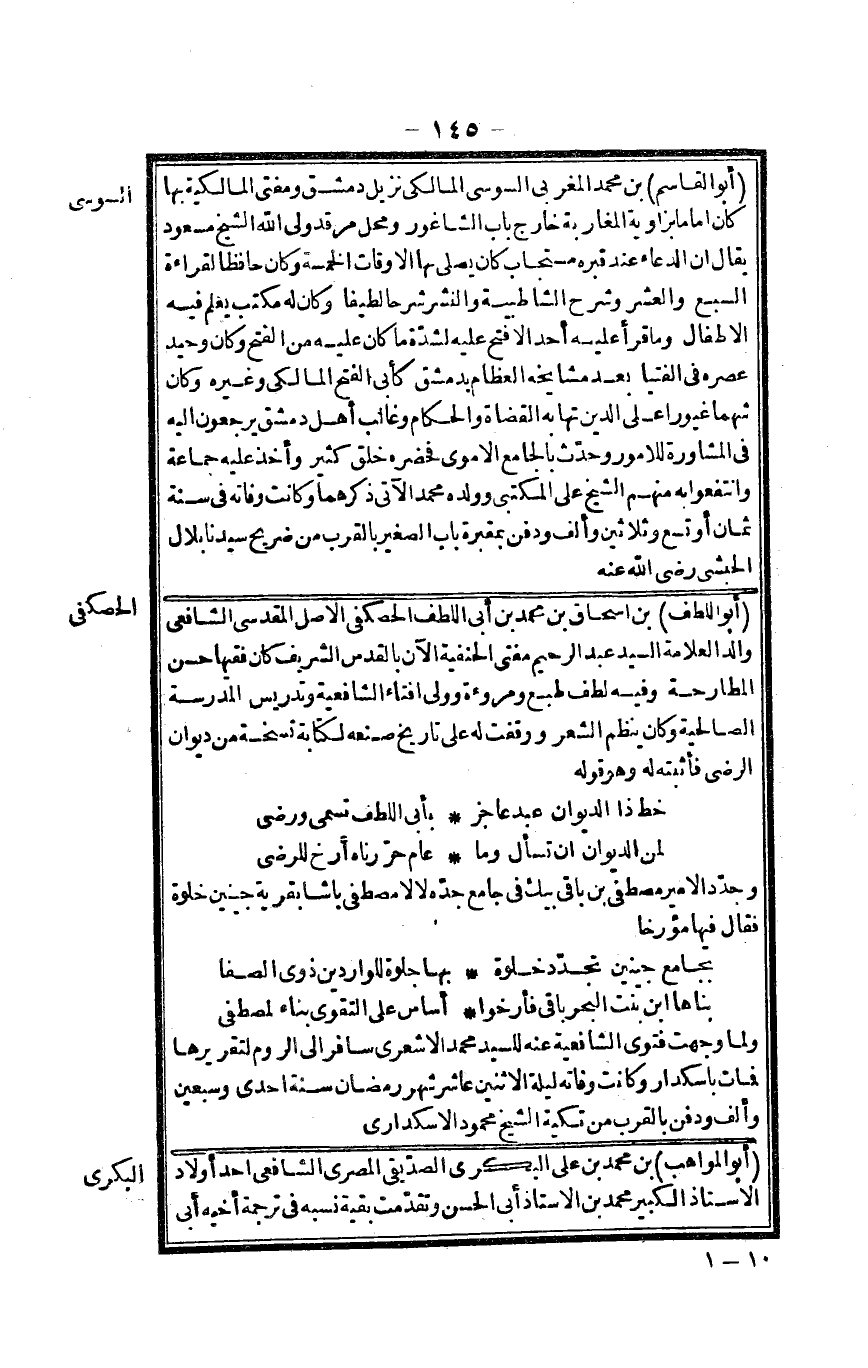 - ١٤٥ -
السوسى
(أبو القاسم) بن محمد المغربى السوسى المالكى نزيل دمشق ومفتى المالكية بها
كان اماما بزاوية المغاربة خارج باب الشاغور ومحل مرقد ولى الله الشيخ مسعود
يقال ان الدعاء عند قبره مستجاب كان يصلى بها الاوقات الخمسة وكان حافظا لقراءة
السبع والعشر وشرح الشاطبية والنشر شرحا لطيفا وكان له مكتب يعلم فيه
الاطفال وما قرأ عليه أحد الا فتح عليه لشدّة ما كان عليه من الفتح وكان وحيد
عصره فى الفتيا بعد مشايخه العظام بدمشق كأبى الفتح المالكى وغيره وكان
شهما غيورا على الدين تهابه القضاة والحكام وغالب أهل دمشق يرجعون اليه
فى المشاورة للامور وحدّث بالجامع الاموى فحضره خلق كثير وأخذ عليه جماعة
وانتفعوا به منهم الشيخ على المكتبى وولده محمد الآتى ذكرهما وكانت وفاته فى سنة
ثمان أو تسع وثلاثين وألف ودفن بمقبرة باب الصغير بالقرب من ضريح سيدنا بلال
الحبشى رضى الله عنه
الحصكفى
(أبو اللطف) بن اسحاق بن محمد بن أبى اللطف الحصكفى الاصل المقدسى الشافعى
والد العلامة السيد عبد الرحيم مفتى الحنفية الآن بالقدس الشريف كان فقيها حسن
المطارحة وفيه لطف طبع ومروءة وولى افتاء الشافعية وتدريس المدرسة
الصالحية وكان ينظم الشعر ووقفت له على تاريخ صنعه لكتابة نسخة من ديوان
الرضى فأثبته له وهو قوله
خط ذا الديوان عبد عاجز * بأبى اللطف تسمى ورضى
لمن الديوان ان تسأل وما * عام حرّرناه أرخ للرضى
وجدّد الامير مصطفى بن باقى بيك فى جامع جدّه لالا مصطفى باشا بقرية جينين خلوة
فقال فيها مؤرخا
بجامع جينين تجدّد خلوة * بها جلوة للواردين ذوى الصفا
بناها ابن بنت البحر باقى فأرخوا * أساس على التقوى بناء لمصطفى
ولما وجهت فتوى الشافعية عنه للسيد محمد الاشعرى سافر الى الروم لتقريرها
فمات باسكدار وكانت وفاته ليلة الاثنين عاشر شهر رمضان سنة احدى وسبعين
وألف ودفن بالقرب من تكية الشيخ محمود الاسكدارى
البكرى
(أبو المواهب) بن محمد بن على البكرى الصديقى المصرى الشافعى احد أولاد
الاستاذ الكبير محمد بن الاستاذ أبى الحسن وتقدّمت بقية نسبه فى ترجمة أخيه أبى
١٠ - ١